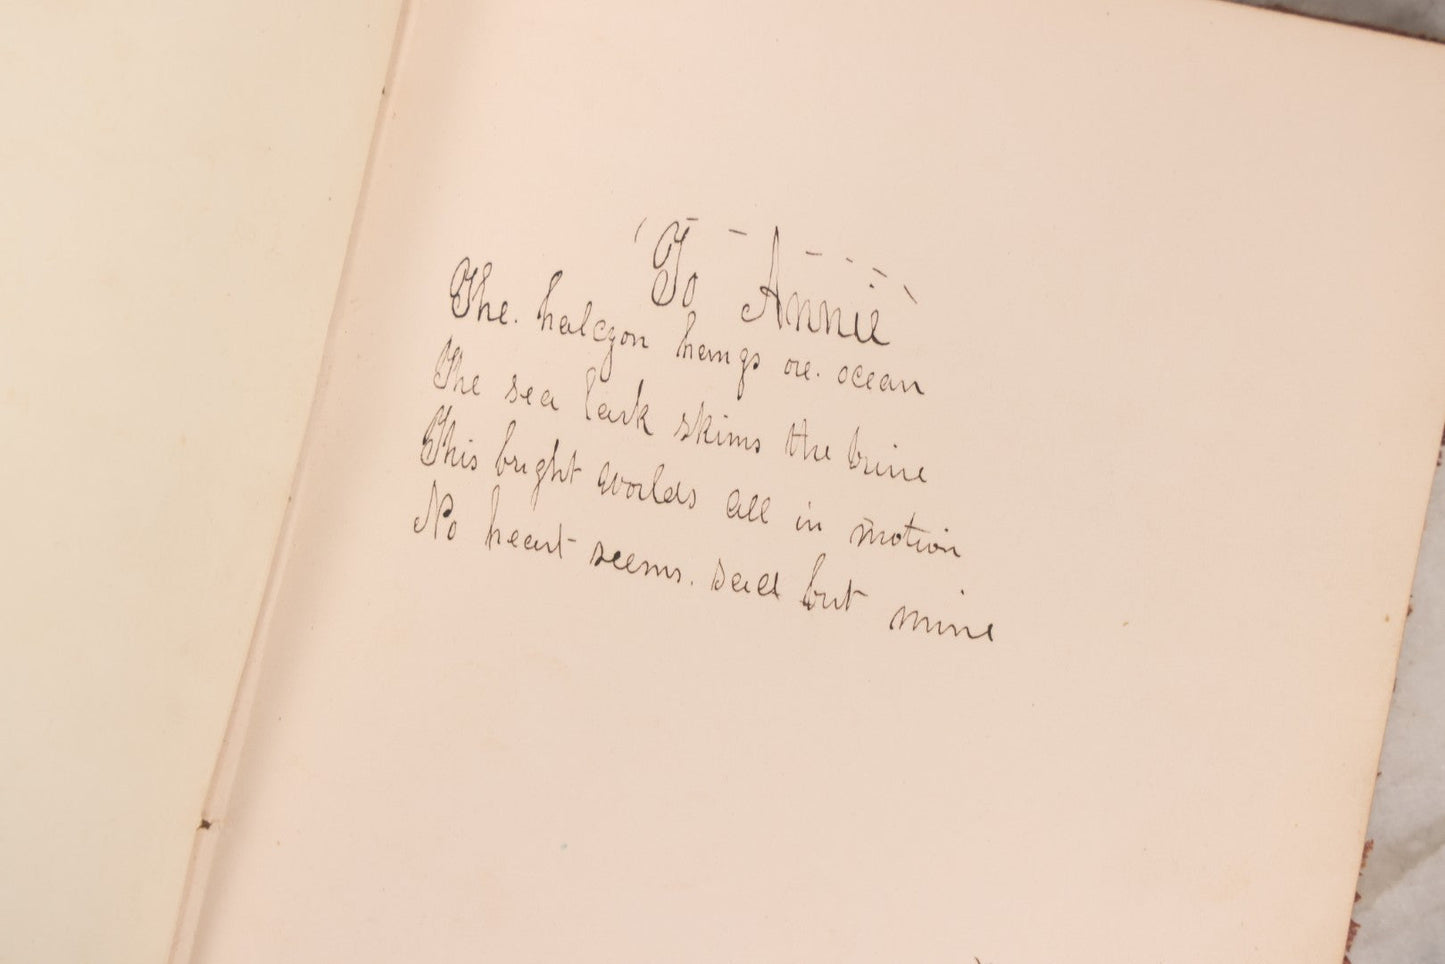 "To Annie"
The halcyon hangs o'er ocean
The sea lark skims the brine
This bright worlds all in motion
No heart seems sad but mine